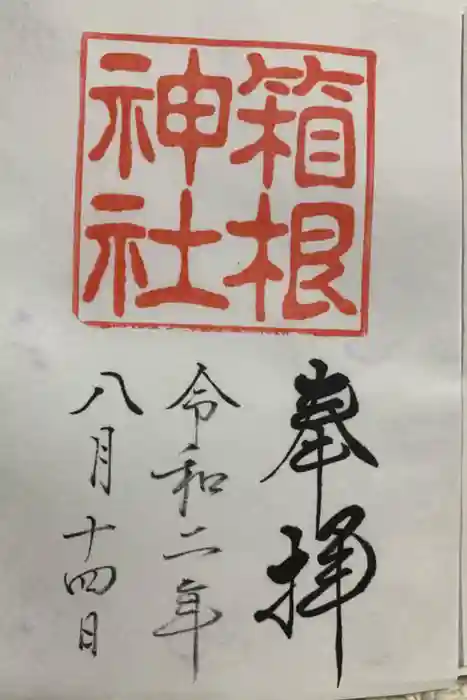 箱根
神社
奉拝
令和二年
八月十四日